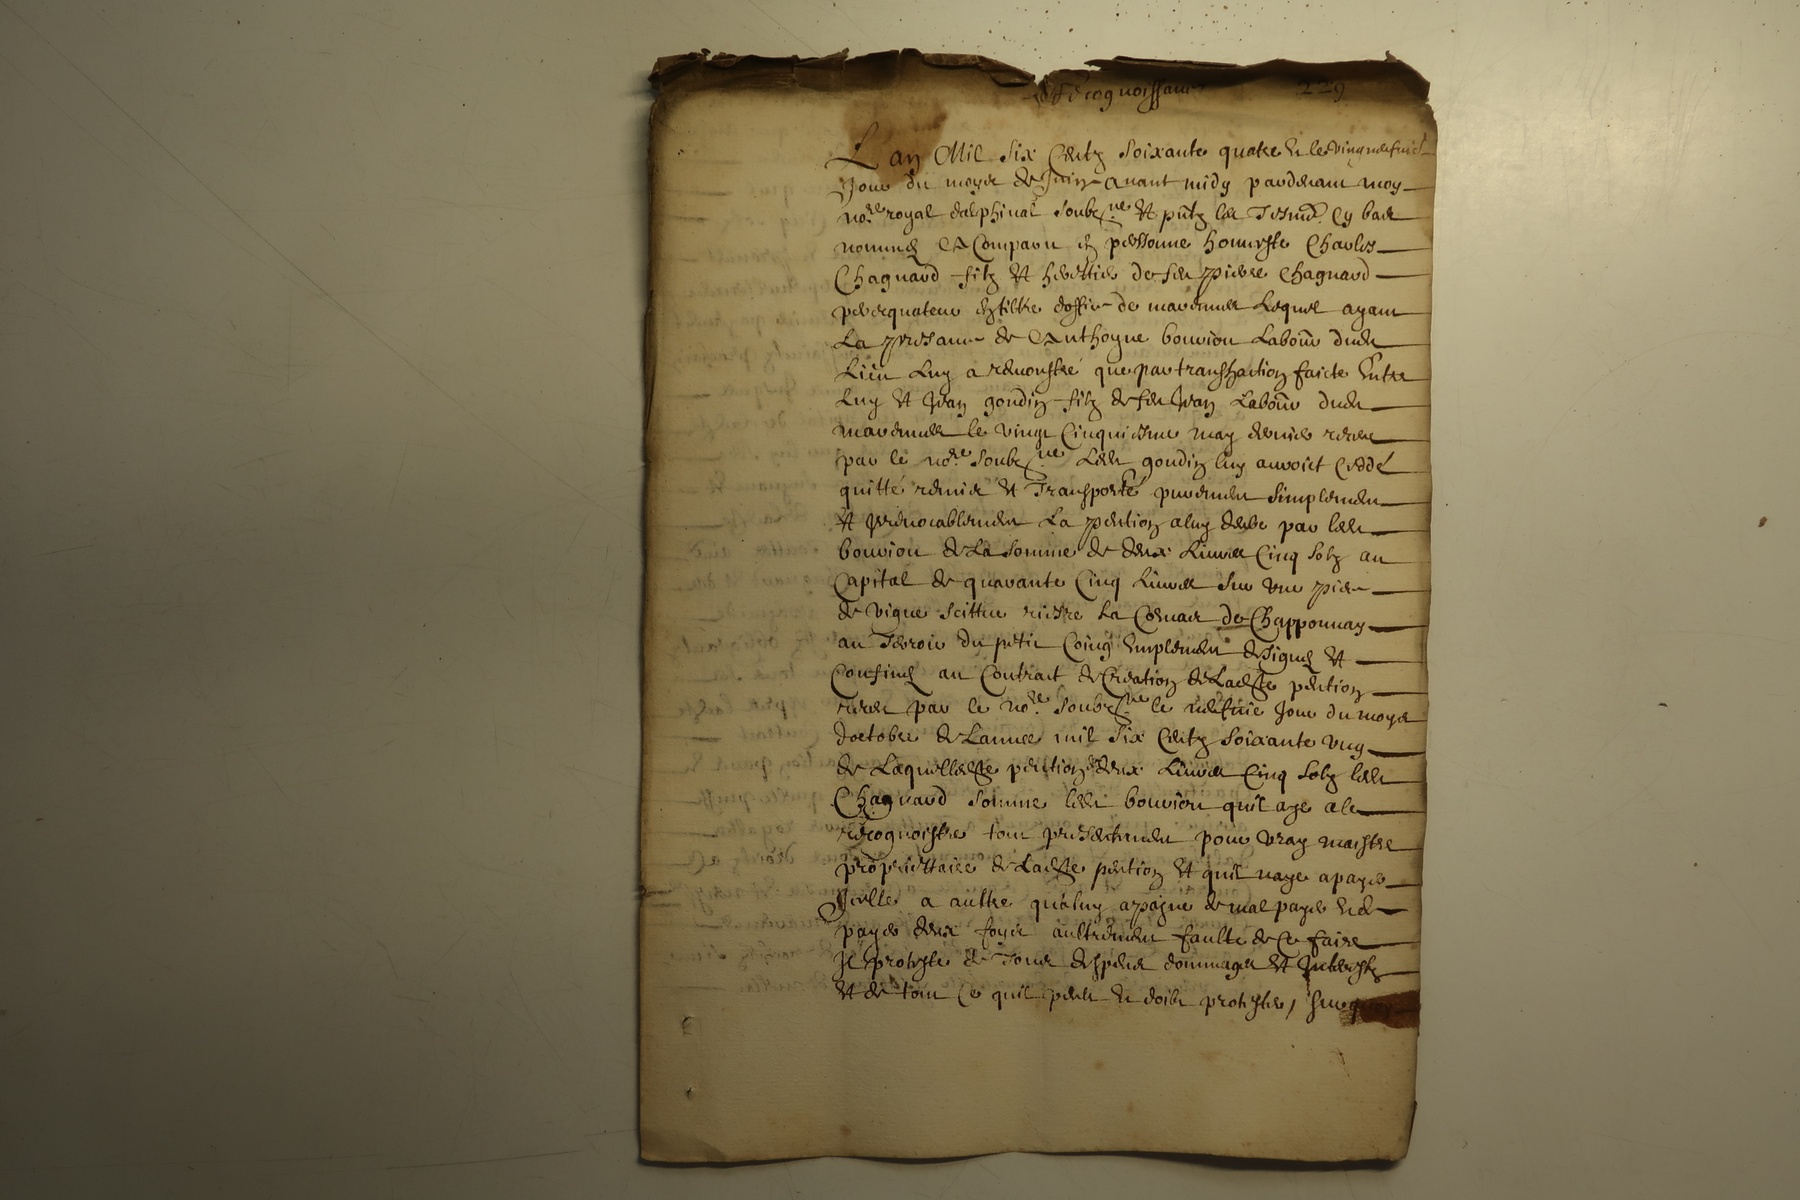 Recognoissance 229
Lan Mil six Centz soixante quatre et le vingtneufvie
Jour du moys de Juin avant midy pardevant moy
nore royal dalphinal soubzne et pntz les Tesmd. cy bas
nommes A Comparu en personne honneste Charles
Chagnard filz etherittier de feu pierre Chagnard
perequateur en tiltre doffice de marennes Lequel ayant
La presance de Anthoyne bouvion Labour dud
Lieu Luy a remonstré que par transhaction faicte Entre
Luy et Jean goudin filz de feu Jean Labour dud
marennes le vingt Cinquiesme may dernier receue
par le nore soubzne Led goudin luy auroict Ceddé
quitté remis et Transporté purement simplement
et Jrrevocablement La pention a luy deube par led
bouvion de La somme de deux Livres Cinq solz au
Capital de quarante Cinq Livres sur une piece
de vigne scittue riere La Comune de Chapponnay
au Terroir du petit Coing emplement designes et
Confines au Contract de Creation de Ladte pention
receu par le nore soubzne le neufvie Jour du moys
doctobre de Lannee mil six Centz soixante ung
de Laquelle dte pention de deux Livres Cinq solz led
Chagnard somme led bouvion quil aye a le
recognoistre tout presentement pour vray maistre
proprietaire de Ladte pention et quil naye a payer
Jcelle a aultre qua luy a peyne de mal payer et de
payer deux foys aultrement faulte de Ce faire
Jl proteste de Tous despens dommages et Jnterestz
et de tout Ce quil peult et doibt protester / surquoy